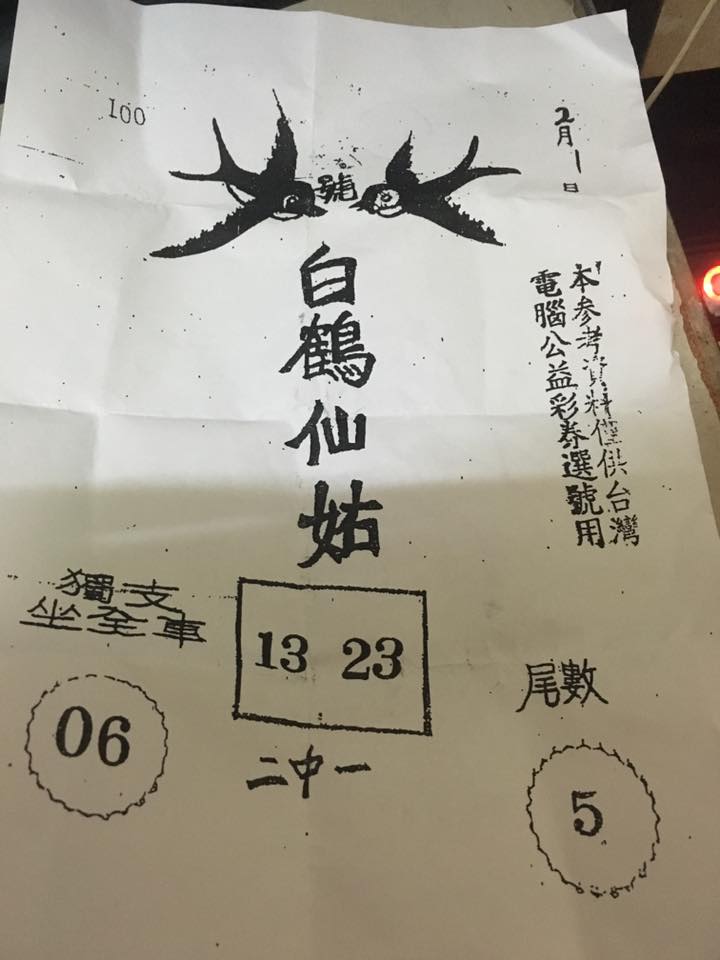 100
號
2月1日
白鶴仙姑
本参考資料僅供台灣
電腦公益彩券選號用
獨支
坐全車
06
13 23
二中一
尾數
5